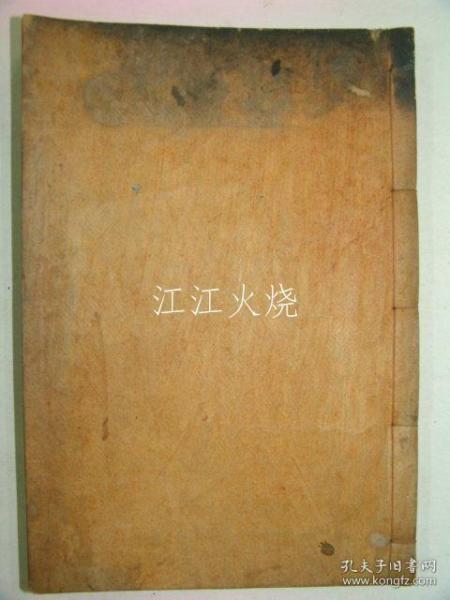 江江火烧
孔夫子旧书网
www.kongfz.com